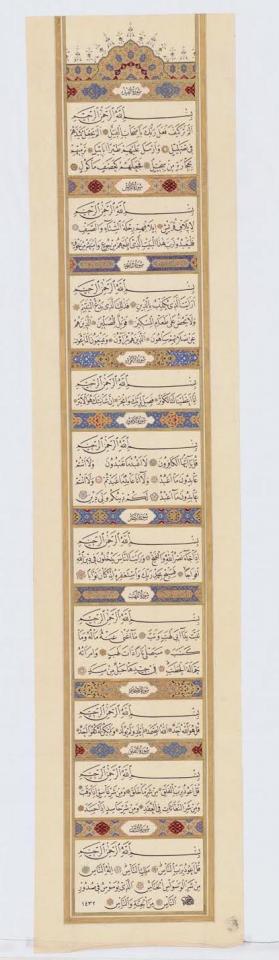 سورة الفيل
بسم الله الرحمن الرحيم
ألم تر كيف فعل ربك بأصحاب الفيل ألم يجعل كيدهم
في تضليل وأرسل عليهم طيرا أبابيل ترميهم
بحجارة من سجيل فجعلهم كعصف مأكول
سورة قريش
بسم الله الرحمن الرحيم
لإيلاف قريش إيلافهم رحلة الشتاء والصيف
فليعبدوا رب هذا البيت الذي أطعمهم من جوع وآمنهم من خوف
سورة الماعون
بسم الله الرحمن الرحيم
أرأيت الذي يكذب بالدين فذلك الذي يدع اليتيم
ولا يحض على طعام المسكين فويل للمصلين الذين هم
عن صلاتهم ساهون الذين هم يراؤن ويمنعون الماعون
سورة الكوثر
بسم الله الرحمن الرحيم
إنا أعطيناك الكوثر فصل لربك وانحر إن شانئك هو الأبتر
سورة الكافرون
بسم الله الرحمن الرحيم
قل يا أيها الكافرون لا أعبد ما تعبدون ولا أنتم
عابدون ما أعبد ولا أنا عابد ما عبدتم ولا أنتم
عابدون ما أعبد لكم دينكم ولي دين
سورة النصر
بسم الله الرحمن الرحيم
إذا جاء نصر الله والفتح ورأيت الناس يدخلون في دين الله
أفواجا فسبح بحمد ربك واستغفره إنه كان توابا
سورة اللهب
بسم الله الرحمن الرحيم
تبت يدا أبي لهب وتب ما أغنى عنه ماله وما
كسب سيصلى نارا ذات لهب وامرأته
حمالة الحطب في جيدها حبل من مسد
سورة الإخلاص
بسم الله الرحمن الرحيم
قل هو الله أحد الله الصمد لم يلد ولم يولد ولم يكن له كفوا أحد
سورة الفلق
بسم الله الرحمن الرحيم
قل أعوذ برب الفلق من شر ما خلق ومن شر غاسق إذا وقب
ومن شر النفاثات في العقد ومن شر حاسد إذا حسد
سورة الناس
بسم الله الرحمن الرحيم
قل أعوذ برب الناس ملك الناس إله الناس
من شر الوسواس الخناس الذي يوسوس في صدور
الناس من الجنة والناس ١٤٣٢